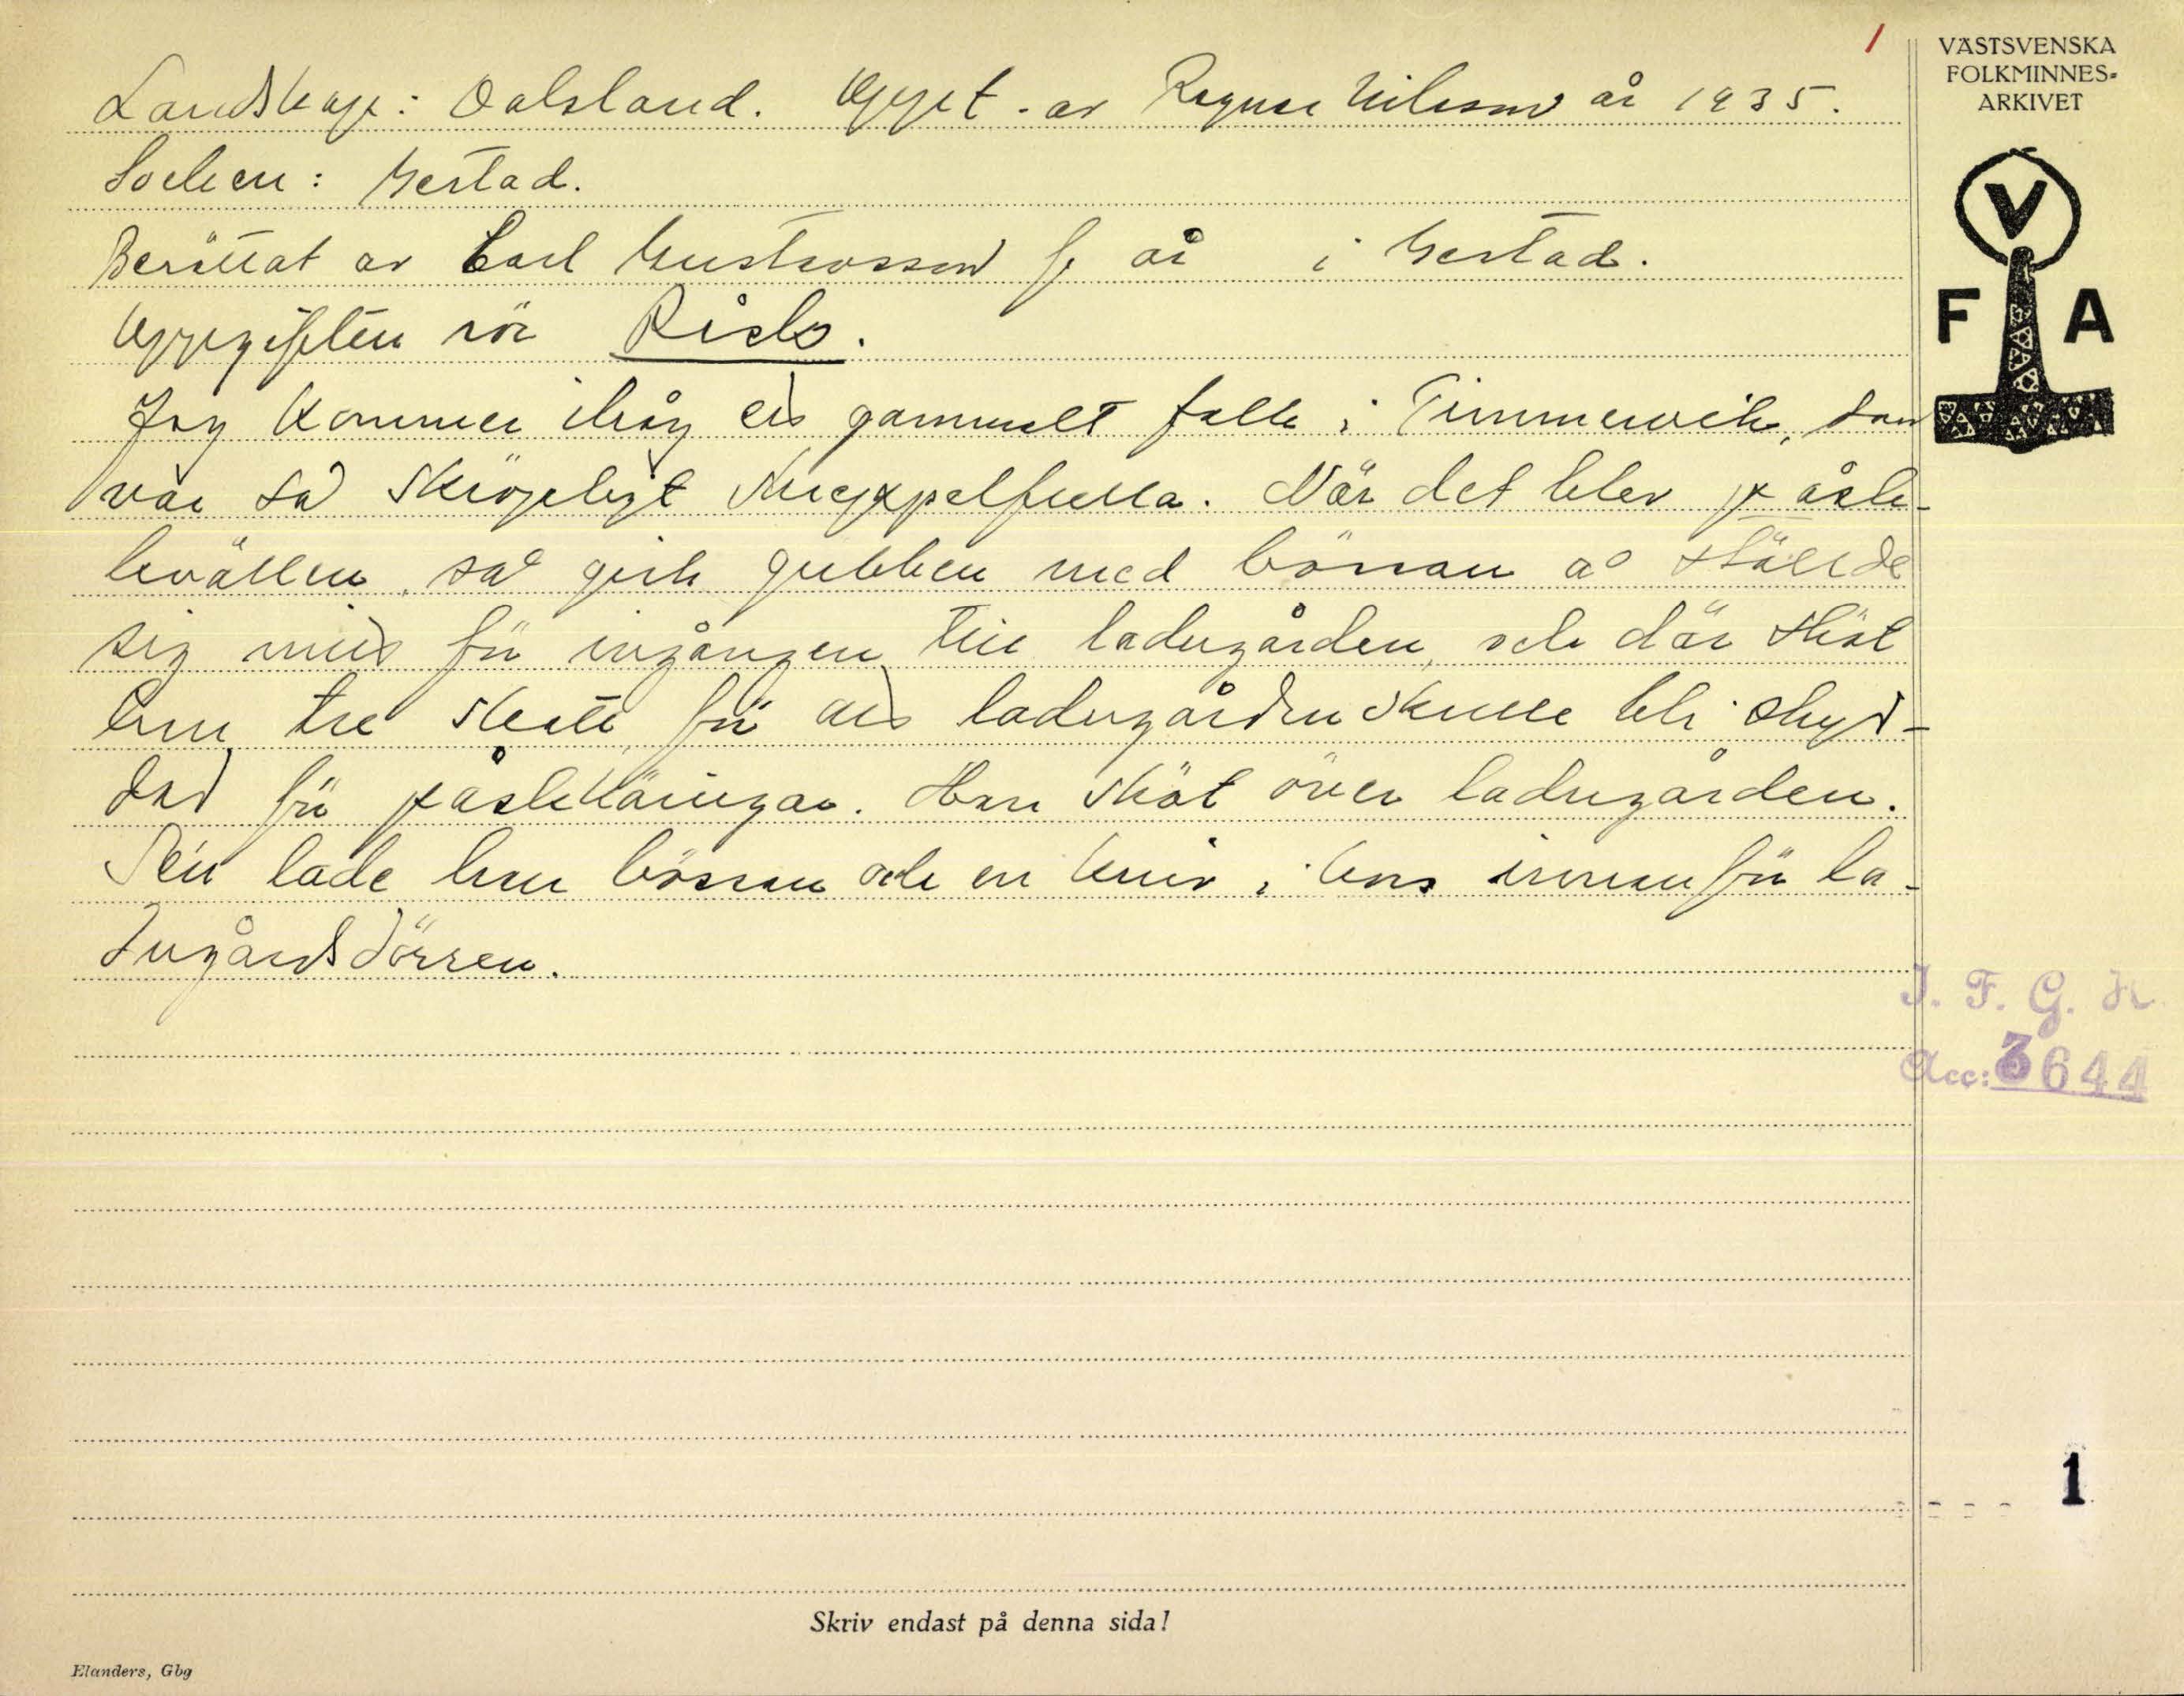 1
VÄSTSVENSKA
FOLKMINNES-
ARKIVET
V
F A
Landskap: Dalsland. Uppt. av Ragnar Nilsson år 1935.
Socken: Gestad.
Berättat av Carl Gustavsson f. år i Gestad.
Uppgiften rör Påsk.
Jag kommer ihåg ett gammalt folk i Timmervik, som
var så skröpeligt skruppelfulla. När det blev påsk-
kvällen, så gick gubben med bössan å ställde
sig mitt för ingången till ladugården, och där sköt
han tre skott, för att ladugården skulle bli skyd-
dad för påskkäringar. Han sköt över ladugården.
Se'n lade han bössan och en kniv i kors innanför la-
dugårdsdörren.
I. F. G. H.
Acc: 3644
1
Skriv endast på denna sida!
Elanders, Gbg